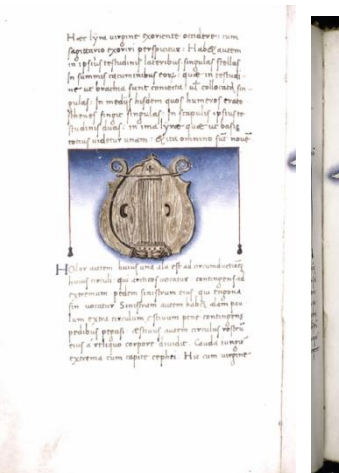 Haec lyra virgine exoriente occidere: cum
sagittario exoriri perspicitur: Habet autem
in ipsius testudinis lateribus singulas stellas
In summis cacuminibus eorum: quae in testudi-
ne ut brachia sunt coniecta: ut collocata sin-
gulas: In mediis hisdem quos humeros erato
sthenes fingit singulas: In scapulis ipsius te-
studinis duas: in ima lyrae quae ut basis
totius videtur unam: Et ita omnino sunt novem
Holor autem huius una ala est ad circunductionem
huius circuli qui arcticos vocatur contingens ad
extremum pedem sinistrum eius qui
vocatur Sinistram autem habet alam pau
lum extra circulum estivum pene contingens
pedibus pegasi: estivus autem circulus rostrum
eius a reliquo corpore dividit. Cauda iungit
extrema cum capite cephei. Hic cum virgine